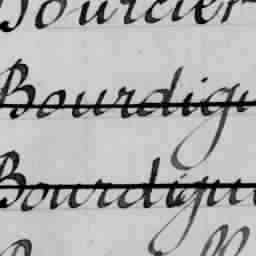 Bourcier
Bourdigu
Bourdigu